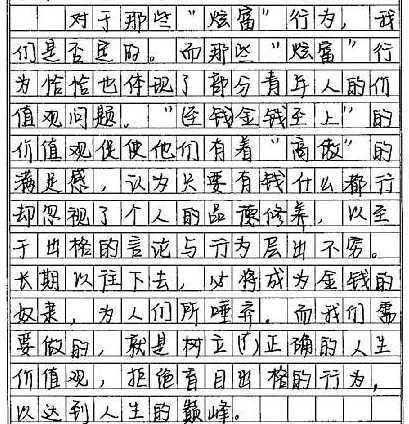 对于那些“炫富”行为，我
们是否定的。而那些“炫富”行
为恰恰也体现了部分青年人的价
值观问题。“金钱至上”的
价值观促使他们有着“高傲”的
满足感，认为只要有钱什么都行
却忽视了个人的品德修养，以至
于出格的言论与行为层出不穷。
长期以往下去，必将成为金钱的
奴隶，为人们所唾弃。而我们需
要做的，就是树立正确的人生
价值观，拒绝盲目出格的行为，
以达到人生的巅峰。